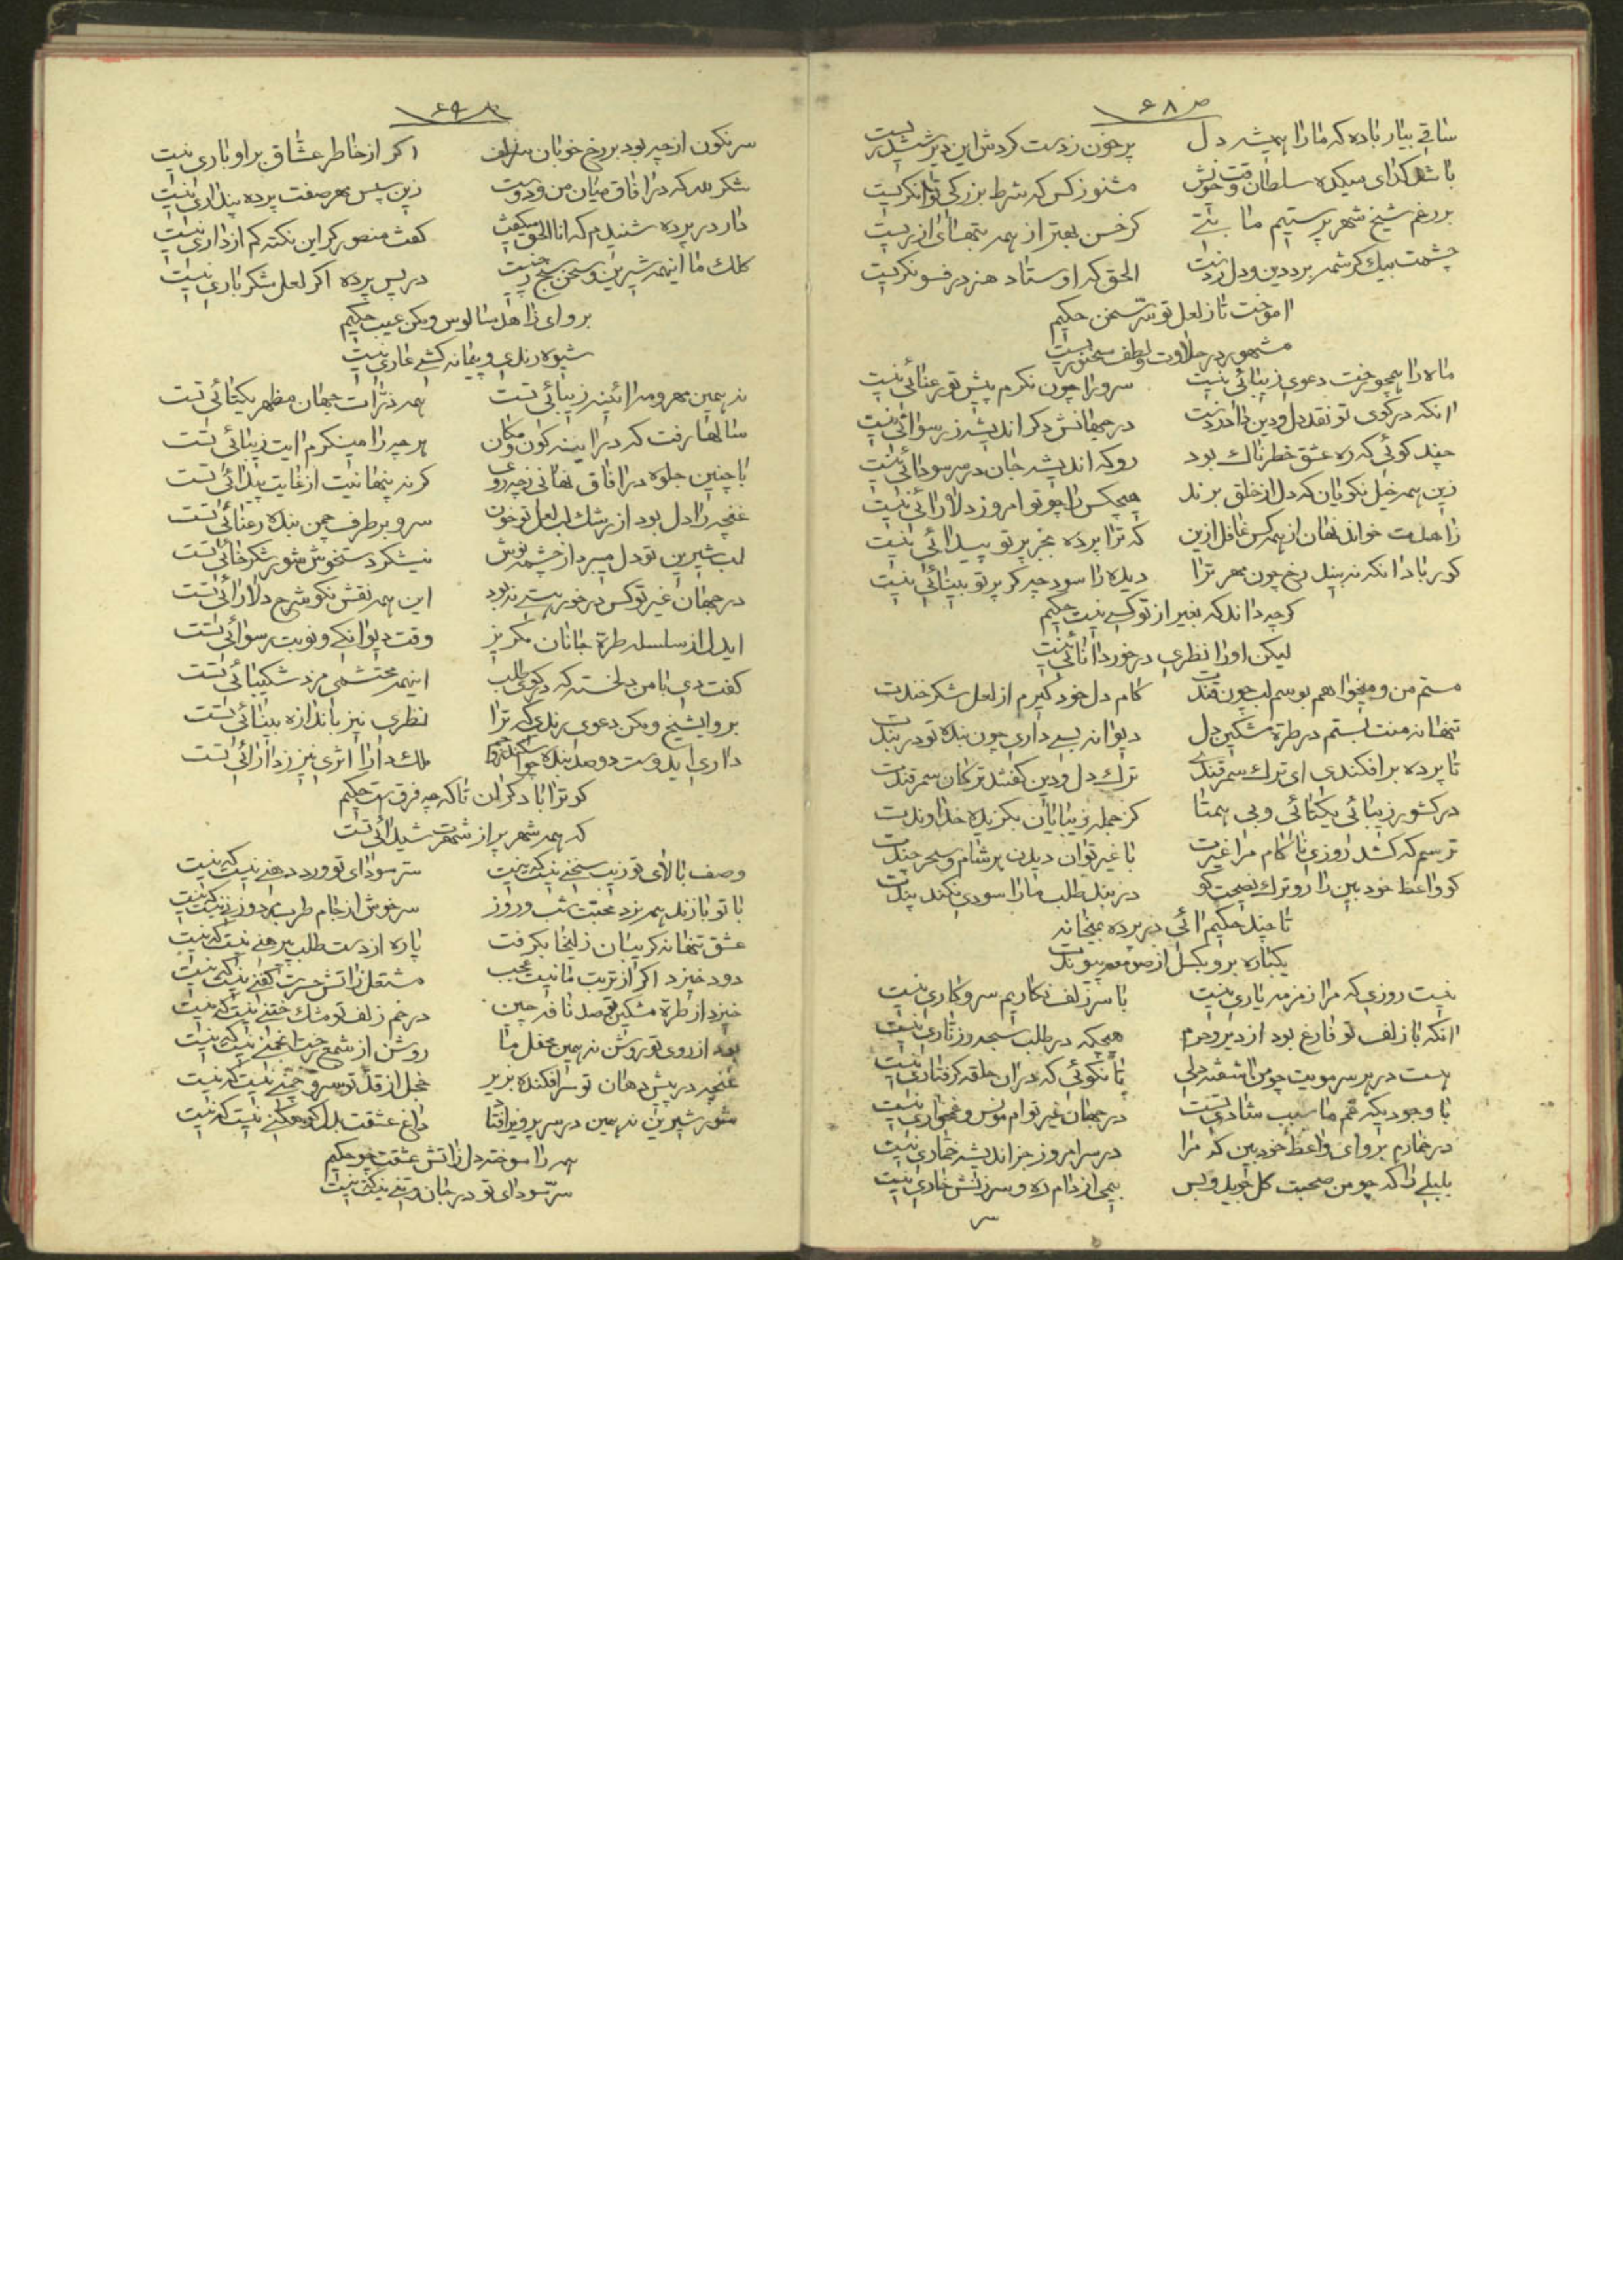 ص ۶۸
ساقی بیار باده که ما را همیشه دل پرخون ز دست گردش این دیر ششدر یست
باشد گدای میکده سلطان وقت خویش مشنو ز کس که شرط بزرکی توانکریست
بر رغم شیخ شهر پرستیم ما بتی کز حسن بهتر از همه بتهاای ازریست
چشمت بیک کرشمه برد دین و دل ز دست الحق که اوستاد هنر در فسونکریست
اموخت تا ز لعل تو سر سخن حکیم
مشهور در حلاوت و لطف سخنوریست
ماه را همچو رخت دعوی زیبائی نیست سرو را چون نکرم پیش تو رعنائی نیست
انکه در کوی تو نقد دل و دین داد ز دست در جهانش دکر اندیشه ز رسوائی نیست
چند کوئی که ره عشق خطرناک بود رو که اندیشه جان در سر سودائی نیست
زین همه خیل نکویان که دل از خلق برند هیچکس را چو تو امروز دلارائی نیست
زاهدت خواند نهان از همه کس غافل ازین که ترا پرده بجز پرتو پیدائی نیست
کور بادا انکه نه بیند رخ چون مهر ترا دیده را سود چه کر پرتو بینائی نیست
کرچه داند که بغیر از تو کسی نیست حکیم
لیکن او را نظری در خور دانائی نیست
مستم من و میخواهم بوسم لب چون قندت کام دل خود کیرم از لعل شکر خندت
تنها نه منت بستم در طره مشکین دل دیوانه بسی داری چون بنده تو در بندت
تا پرده برافکندی ای ترک سمرقندی ترک دل و دین کفتند ترکان سمرقندت
در کشور زیبائی یکتائی و بی همتا کز جمله زیبایان بکزیده خداوندت
ترسم که کشد روزی ناکام مرا غیرت با غیر توان دیدن هر شام و سحر چندت
کو واعظ خود بین را رو ترک نصیحت کو در بند طلب ما را سودی نکند پندت
تا چند حکیم ائی در پرده بمیخانه
یکباره برو بکسل از صومعه پیوندت
نیست روزی که مرا زمزمه یاری نیست با سر زلف نکاریم سر و کاری نیست
انکه با زلف تو فارغ بود از دیر و حرم هیچکه در طلب سبحه و زناری نیست
هست در هر سر مویت چو من اشفته دلی تا نکوئی که در ان حلقه کرفتاری نیست
با وجودیکه غم ما سبب شادی تست در جهان غیر توام مونس و غمخواری نیست
در خمارم برو ای واعظ خود بین که مرا در سر امروز جز اندیشه خماری نیست
بلبلی را که چو من صحبت کل جوید و بس بیمی از دام ره و سرزنش خاری نیست
سر
ص ۶۹
سرنکون از چه بود بر رخ خوبان سر زلف اکر از خاطر عشاق بر او باری نیست
شکر لله که در افاق میان من و دوست زین سپس مهر صفت پرده پنداری نیست
دار در پرده شنیدم که انا الحق میکفت کفت منصور کر این نکته کم از داری نیست
کلک ما اینهمه شیرین و سخن سنج ز چیست در پس پرده اکر لعل شکر باری نیست
برو ای زاهد سالوس و مکن عیب حکیم
شیوه رندی و پیمانه کشی عاری نیست
نه همین مهر و مه ائینه زیبائی تست همه ذرات جهان مظهر یکتائی تست
سالها رفت که در اینه کون و مکان هر چه را مینکرم ایت زیبائی تست
با چنین جلوه در افاق نهانی ز چه روی کر نه پنهانیت از غایت پیدائی تست
غنچه را دل بود از رشک لب لعل تو خون سرو بر طرف چمن بنده رعنائی تست
لب شیرین تو دل میبرد از چشمه نوش نیشکر دستخوش شور شکرخائی تست
در جهان غیر تو کس در خور هستی نبود این همه نقش نکو شرح دلارائی تست
ایدل از سلسله طره جانان مکریز وقت دیوانکی و نوبت رسوائی تست
کفت دی با من دلخسته که در کوی طلب اینهمه محتشمی مزد شکیبائی تست
برو ایشیخ و مکن دعوی رندی که ترا نظری نیز باندازه بینائی تست
داری ایدوست دو صد بنده چو اسکندر و جم ملک دارا اثری نیز ز دارائی تست
کو ترا با دکران تا که چه فرق است حکیم
که همه شهر پر از شهرت شیدائی تست
وصف بالای تو زیب سخنی نیست که نیست سر سودای تو ورد دهنی نیست که نیست
با تو بازند همه نرد محبت شب و روز سر خوش از جام طرب مرد و زنی نیست که نیست
عشق تنها نه کریبان زلیخا بکرفت پاره از دست طلب پیرهنی نیست که نیست
دود خیزد اکر از تربت ما نیست عجب مشتعل ز اتش حسرت کفنی نیست که نیست
خیزد از طره مشکین تو صد نافه چین در خم زلف تو مشک ختنی نیست که نیست
بود از روی تو روشن نه همین محفل ما روشن از شمع رخت انجمنی نیست که نیست
غنچه در پیش دهان تو سر افکنده بزیر خجل از قد تو سرو چمنی نیست که نیست
شور شیرین نه همین در سر پرویز افتاد داغ عشقت بدل کوهکنی نیست که نیست
همه را سوخته دل ز اتش عشقت چو حکیم
سر سودای تو در جان و تنی نیست که نیست